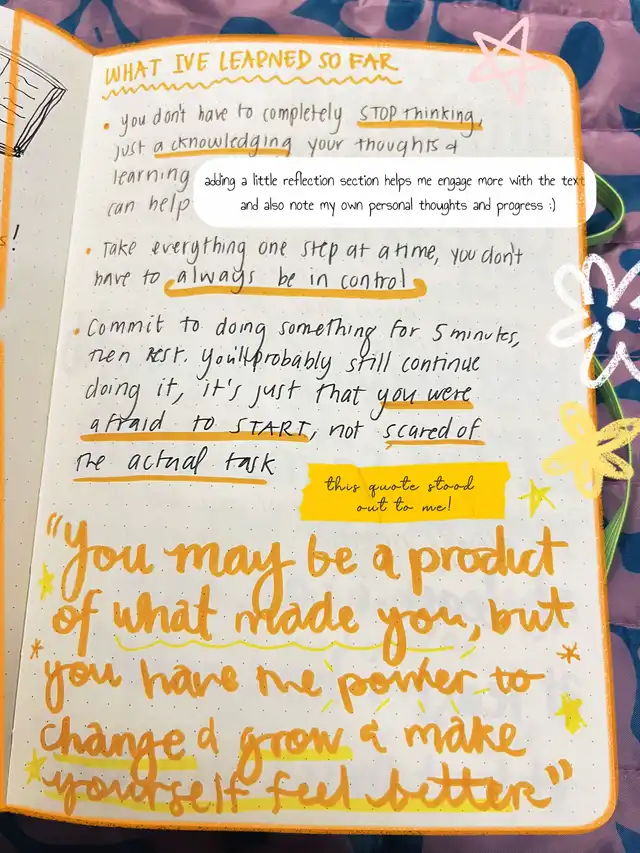 s!
WHAT IVE LEARNED SO FAR
• you don't have to completely STOP thinking,
just acknowledging your thoughts &
learning
can help
adding a little reflection section helps me engage more with the text
and also note my own personal thoughts and progress :)
• Take everything one step at a time, you don't
have to always be in control
• Commit to doing something for 5 minutes,
then rest. You'll probably still continue
doing it, it's just that you were
afraid to START, not scared of
the actual task
this quote stood
out to me!
"You may be a product
of what made you, but
you have the power to
change & grow & make
yourself feel better"